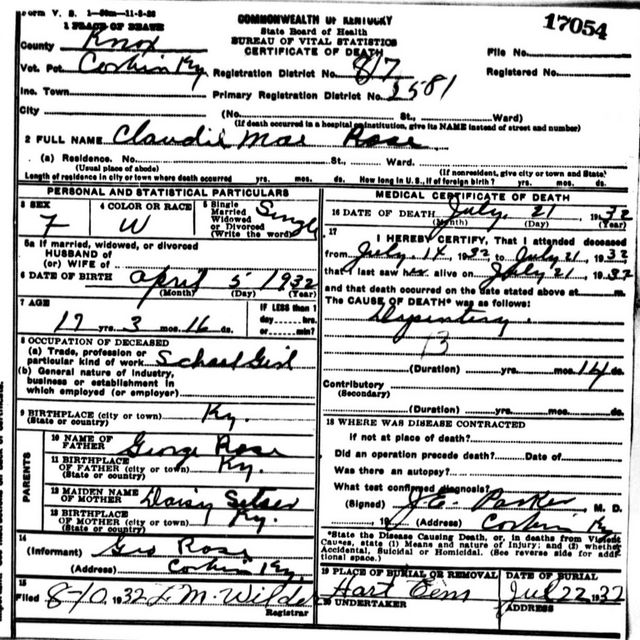 Form V. S. 1-50m-11-5-26
1 PLACE OF DEATH
COMMONWEALTH OF KENTUCKY
State Board of Health
BUREAU OF VITAL STATISTICS
CERTIFICATE OF DEATH
17054
County Knox
File No.
Vot. Pct. Corbin Ky
Registration District No. 817
Registered No.
Inc. Town
Primary Registration District No. 2581
City (No. St., Ward)
(If death occurred in a hospital or institution, give its NAME instead of street and number)
2 FULL NAME Claudie Mae Rose
(a) Residence. No. St., Ward.
(Usual place of abode) (If nonresident, give city or town and State)
Length of residence in city or town where death occurred yrs. mos. ds. How long in U. S., if of foreign birth? yrs. mos. ds.
PERSONAL AND STATISTICAL PARTICULARS
3 SEX F
4 COLOR OR RACE W
5 Single Married Widowed or Divorced (Write the word) Single
5a If married, widowed, or divorced
HUSBAND of
(or) WIFE of
6 DATE OF BIRTH April 5 1932
(Month) (Day) (Year)
7 AGE
17 yrs. 3 mos. 16 ds.
IF LESS than 1 day hrs. or min?
8 OCCUPATION OF DECEASED
(a) Trade, profession or particular kind of work School Girl
(b) General nature of industry, business or establishment in which employed (or employer)
9 BIRTHPLACE (city or town) Ky.
(State or country)
PARENTS
10 NAME OF FATHER George Rose
11 BIRTHPLACE OF FATHER (city or town) Ky.
(State or country)
12 MAIDEN NAME OF MOTHER Daisy
13 BIRTHPLACE OF MOTHER (city or town) Ky.
(State or country)
14
(Informant) Geo Rose
(Address) Corbin Ky.
15
Filed 8-10 1932 L. M. Wilder
Registrar
MEDICAL CERTIFICATE OF DEATH
16 DATE OF DEATH July 21 1932
(Month) (Day) (Year)
17
I HEREBY CERTIFY, That I attended deceased
from July 14 1932 to July 21, 1932
that I last saw alive on July 21, 1932
and that death occurred on the date stated above at m.
The CAUSE OF DEATH* was as follows:
Dysentery.
13
(Duration) yrs. mos. 14 ds.
Contributory
(Secondary)
(Duration) yrs. mos. ds.
18 WHERE WAS DISEASE CONTRACTED
If not at place of death?
Did an operation precede death? Date of
Was there an autopsy?
What test confirmed diagnosis?
(Signed) J.E. Parker M. D.
, 19 (Address) Corbin Ky
*State the Disease Causing Death, or, in deaths from Violent
Causes, state (1) Means and nature of Injury; and (2) whether
Accidental, Suicidal or Homicidal. (See reverse side for additional space.)
19 PLACE OF BURIAL OR REMOVAL Hart Cem
DATE OF BURIAL Jul 22 1932
20 UNDERTAKER
ADDRESS